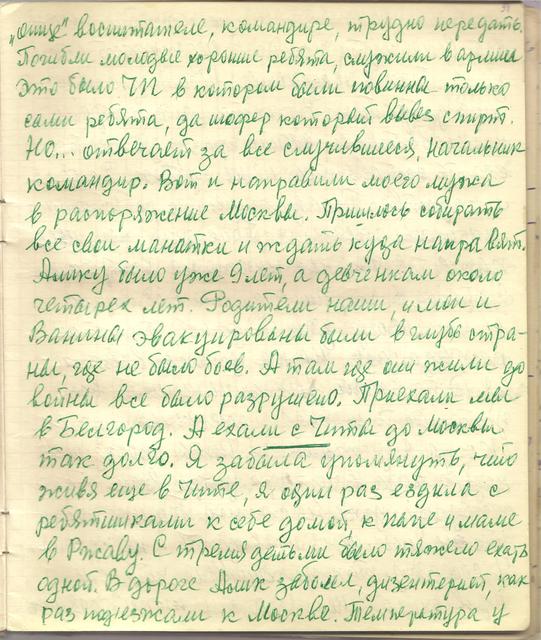 „отце" воспитателе, командире, трудно передать.
Погибли молодые хорошие ребята, служили в армии
Это было ЧП в котором были повинны только
сами ребята, да шофер который вывез спирт.
Но... отвечает за все случившиеся, начальник
командир. Вот и направили моего мужа
в распоряжение Москвы. Пришлось собирать
все свои манатки и ждать куда направят.
Алику было уже 9 лет, а девченкам около
четырех лет. Родители наши, и мои и
Ванины эвакуированы были в глубь стра-
ны, где не было боев. А там где они жили до
войны все было разрушено. Приехали мы
в Белгород. А ехали с Читы до Москвы
так долго. Я забыла упомянуть, что
живя еще в Чите, я один раз ездила с
ребятишками к себе домой к папе и маме
в Ржаву. С тремя детьми было тяжело ехать
одной. В дороге Алик заболел, дизентерией, как
раз подезжали к Москве. Температура у